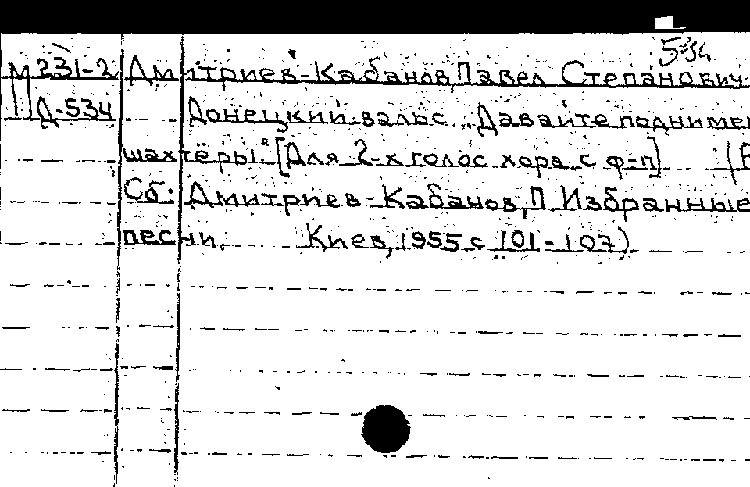 5-54
М 231-2 Дмитриев-Кабанов, Павел Степанович
Д-534 Донецкий вальс. „Давайте поднимем
шахтёры" [Для 2-х голос хора с ф-п] (В
Сб: Дмитриев-Кабанов, П Избранные
песни, Киев, 1955 с 101-107)